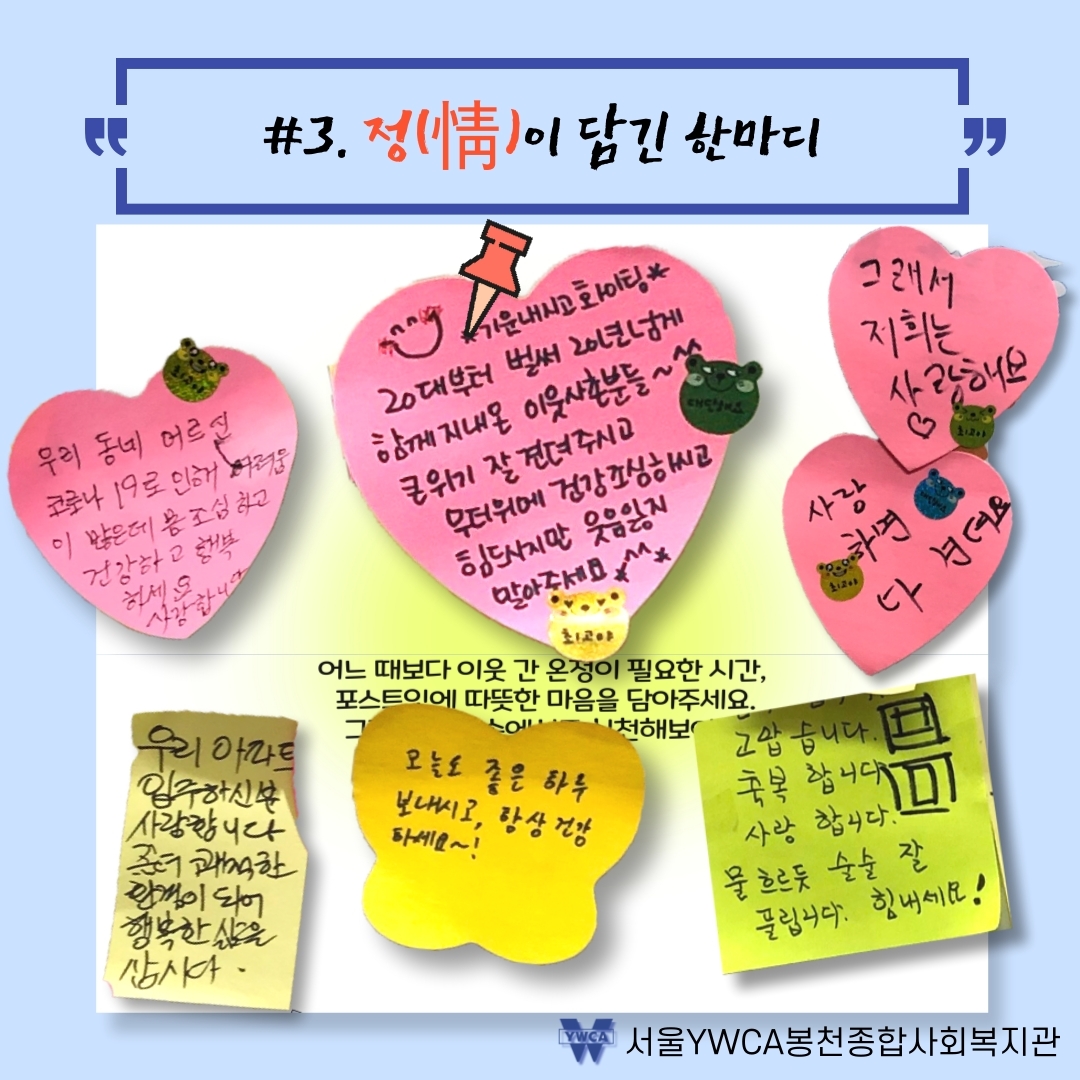 #3. 정(情)이 담긴 한마디
우리 동네 어르신
코로나 19로 인해 어려움
이 많은데 몸 조심하고
건강하고 행복
하세요
사랑합니다
*기운내시고 화이팅*
20대부터 벌써 20년넘게
함께 지내온 이웃사촌분들~^^
큰위기 잘 견뎌주시고
무더위에 건강조심하시고
힘드시지만 웃음잃지
말아주세요 *^^*
대단해요
최고야
그래서
지희는
사랑해요
♡
최고야
사랑
하면
다 보여요
최고야
어느 때보다 이웃 간 온정이 필요한 시간,
포스트잇에 따뜻한 마음을 담아주세요.
우리 아파트
입주하신분
사랑합니다
좀더 쾌적한
환경이 되어
행복한 삶을
삽시다.
오늘도 좋은 하루
보내시고, 항상 건강
하세요~!
고맙습니다.
축복 합니다
사랑 합니다.
물 흐르듯 술술 잘
풀립니다. 힘내세요!
YWCA 서울YWCA봉천종합사회복지관